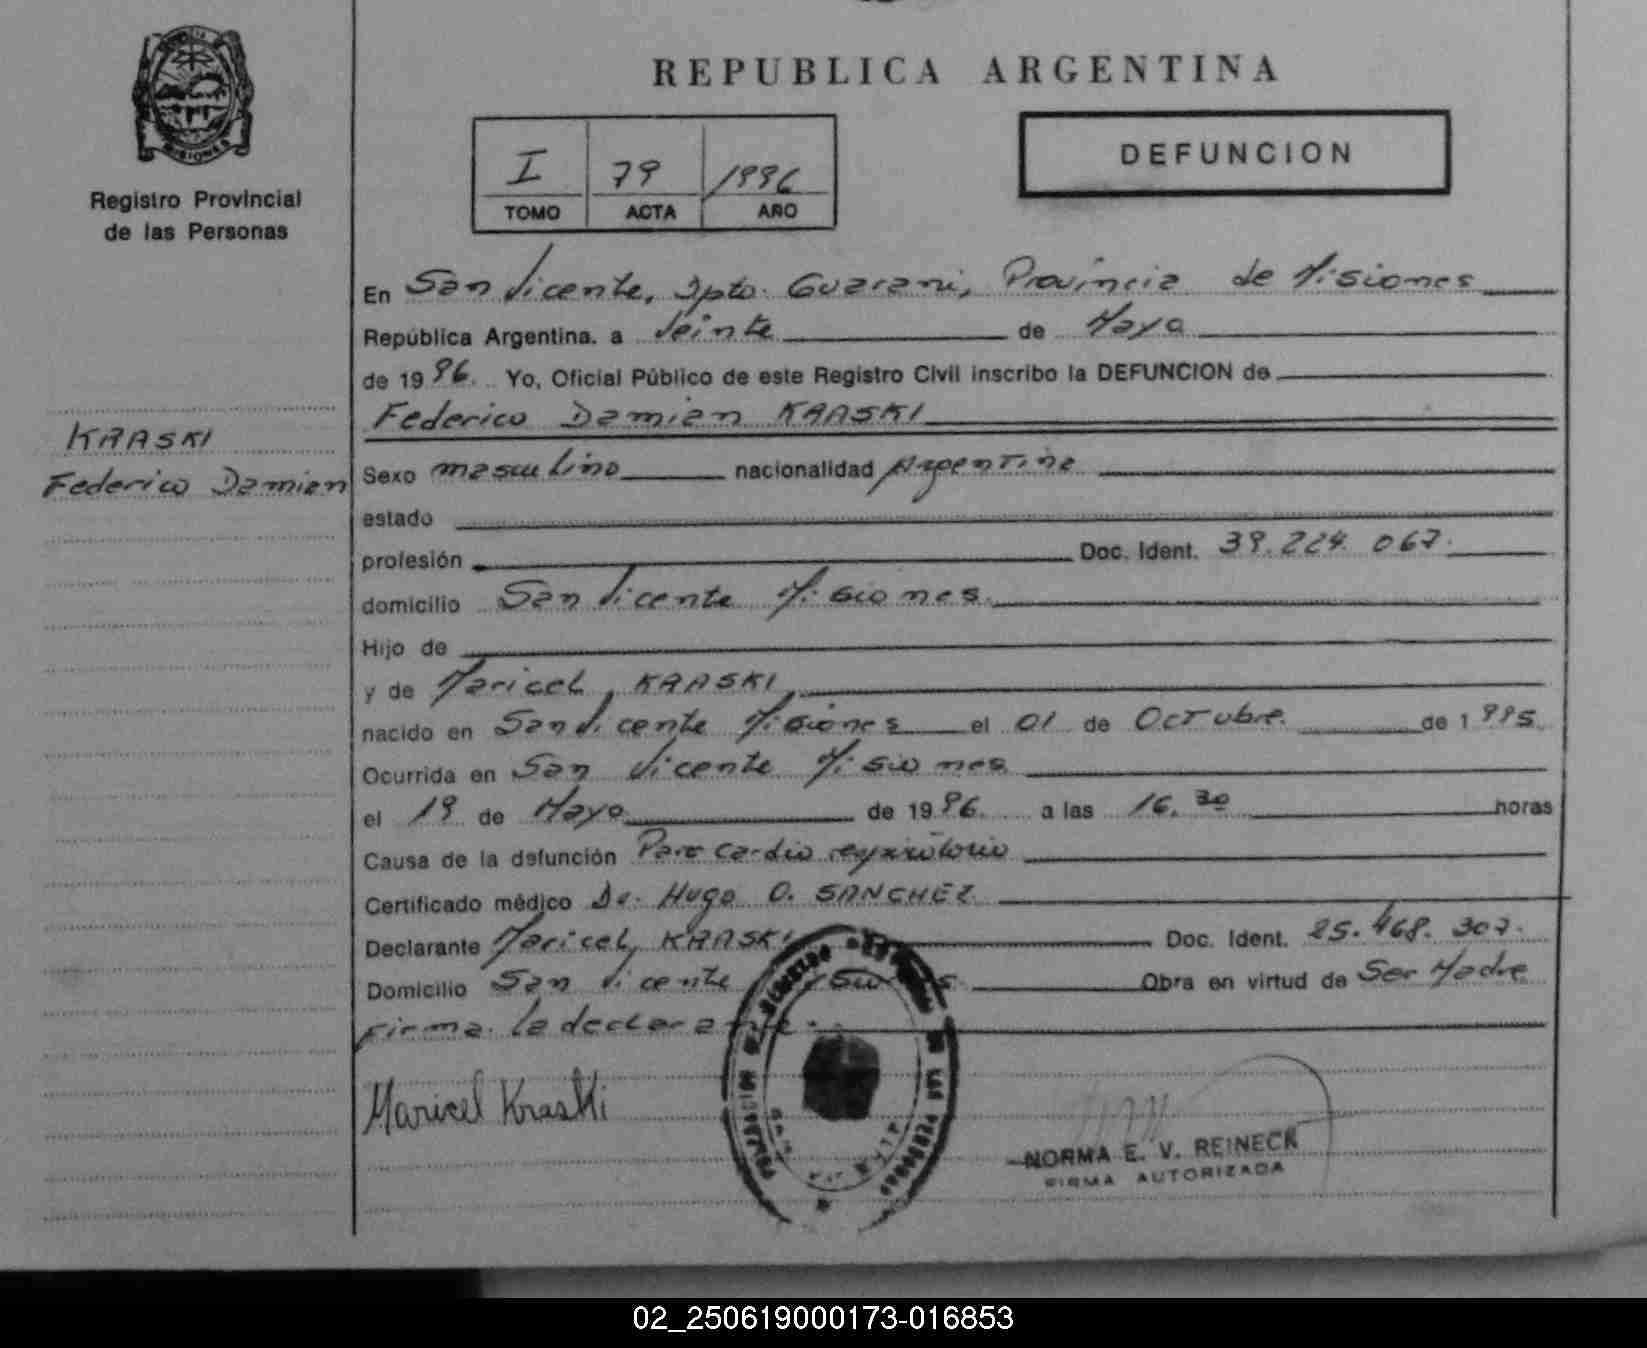 MISIONES
Registro Provincial
de las Personas
KRASKI
Federico Damian
REPUBLICA ARGENTINA
I 79 1996
TOMO ACTA AÑO
DEFUNCION
En San Vicente, Dpto. Guarani, Provincia de Misiones
República Argentina. a Veinte de Mayo
de 1996. Yo, Oficial Público de este Registro Civil inscribo la DEFUNCION de
Federico Damian KRASKI
Sexo masculino nacionalidad Argentina
estado
profesión Doc. Ident. 39.224.067.
domicilio San Vicente Misiones.
Hijo de
y de Maricel, KRASKI,
nacido en San Vicente Misiones el 01 de Octubre. de 1995.
Ocurrida en San Vicente Misiones
el 19 de Mayo de 1996. a las 16.30 horas
Causa de la defunción Paro Cardio respiratorio
Certificado médico Dr. Hugo O. SANCHEZ
Declarante Maricel, KRASKI Doc. Ident. 25.468.307.
Domicilio San Vicente Obra en virtud de Ser Madre
Firma. la declarante.
Maricel Kraski
NORMA E. V. REINECK
FIRMA AUTORIZADA
02_250619000173-016853